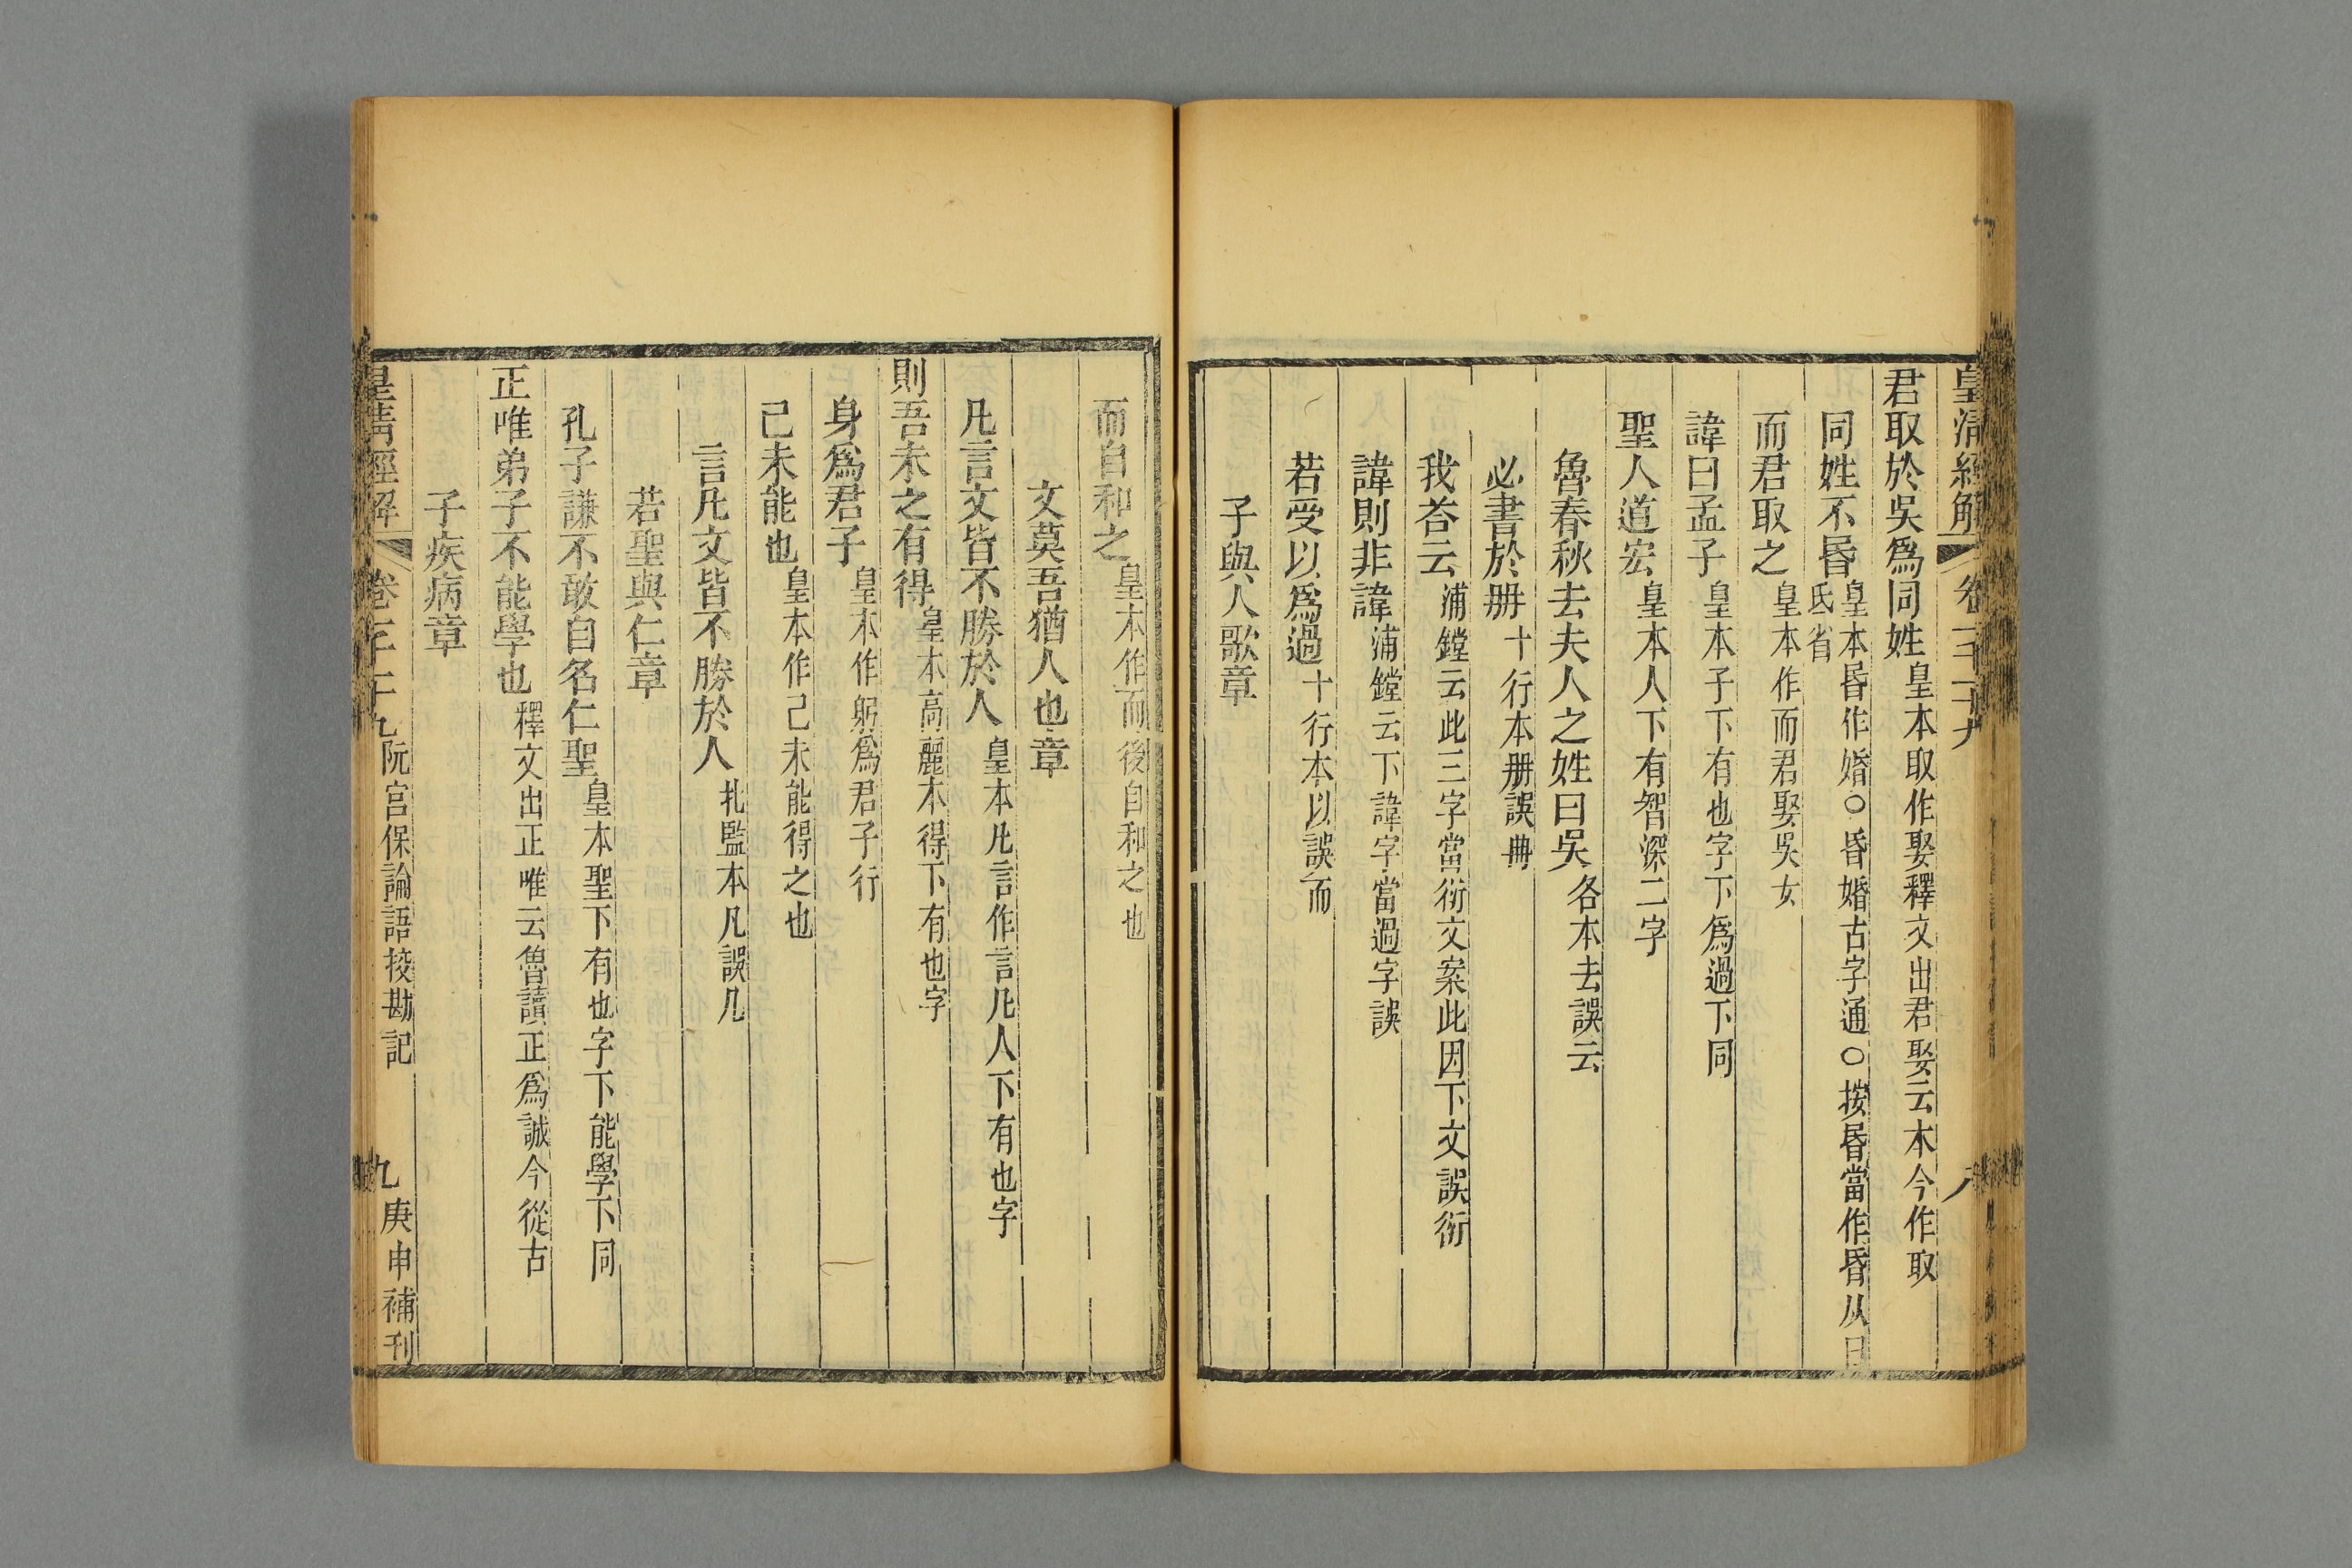 皇清經解 卷一千二十九 八
君取於吳爲同姓皇本取作娶釋文出君娶云本今作取
同姓不昬皇本昬作婚○昏婚古字通○按昬當作昏从日氐省
而君取之皇本作而君娶吳女
諱曰孟子皇本子下有也字下爲過下同
聖人道宏皇本人下有智深二字
魯春秋去夫人之姓曰吳各本去誤云
必書於册十行本册誤冊
我荅云浦鏜云此三字當衍文案此因下文誤衍
諱則非諱浦鏜云下諱字當過字誤
若受以爲過十行本以誤而
子與人歌章
而自和之皇本作而後自和之也
文莫吾猶人也章
凡言文皆不勝於人皇本凡言作言凡人下有也字
則吾未之有得皇本高麗本得下有也字
身爲君子皇本作躬爲君子行
己未能也皇本作己未能得之也
言凡文皆不勝於人北監本凡誤几
若聖與仁章
孔子謙不敢自名仁聖皇本聖下有也字下能學下同
正唯弟子不能學也釋文出正唯云魯讀正爲誠今從古
子疾病章
皇清經解 卷一千二十九 阮宮保論語挍勘記 九 庚申補刊